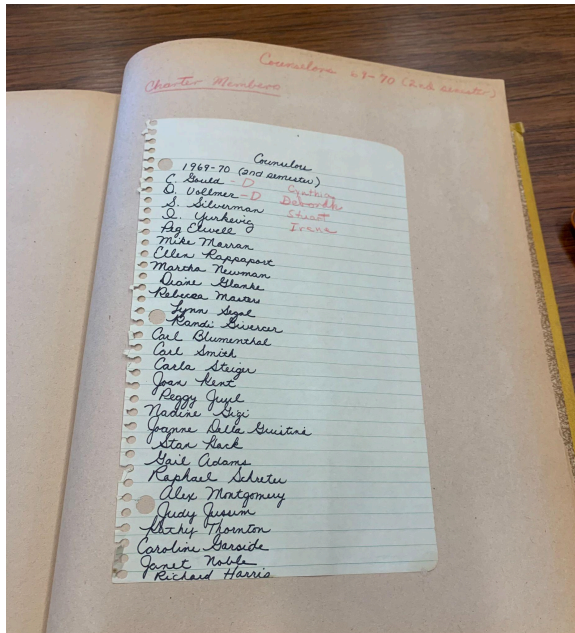 Counselors 69-70 (2nd semester)
Charter Members
Counselors
1969-70 (2nd semester)
C. Gould - D Cynthia
D. Vollmer - D Deborah
S. Silverman Stuart
I. Yurkevig Irene
Peg Elwell
Mike Marran
Ellen Rappaport
Martha Newman
Diane Glanke
Rebecca Masters
Lynn Segal
Randi Siverser
Carl Blumenthal
Carl Smith
Carla Steiger
Joan Kent
Peggy
Nadine Gigi
Joanne Dalla Giustina
Stan Hack
Gail Adams
Raphael Schreter
Alex Montgomery
Judy Jussim
Kathy Thornton
Caroline Garside
Janet Noble
Richard Harris